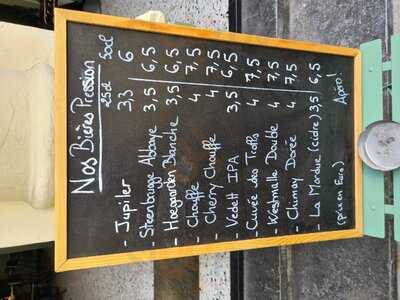 Nos Bières Pression
25cl 50cl
- Jupiler 3,3 6
- Steenbrugge Abbaye 3,5 6,5
- Hoegarden Blanche 3,5 6,5
- Chouffe 4 7,5
- Cherry Chouffe 4 7,5
- Vedett IPA 3,5 6,5
- Cuvée des Trolls 4 7,5
- Westmalle Double 4 7,5
- Chimay Dorée 4 7,5
- La Mordue (cidre) 3,5 6,5
(prix en Euro) Apéro!